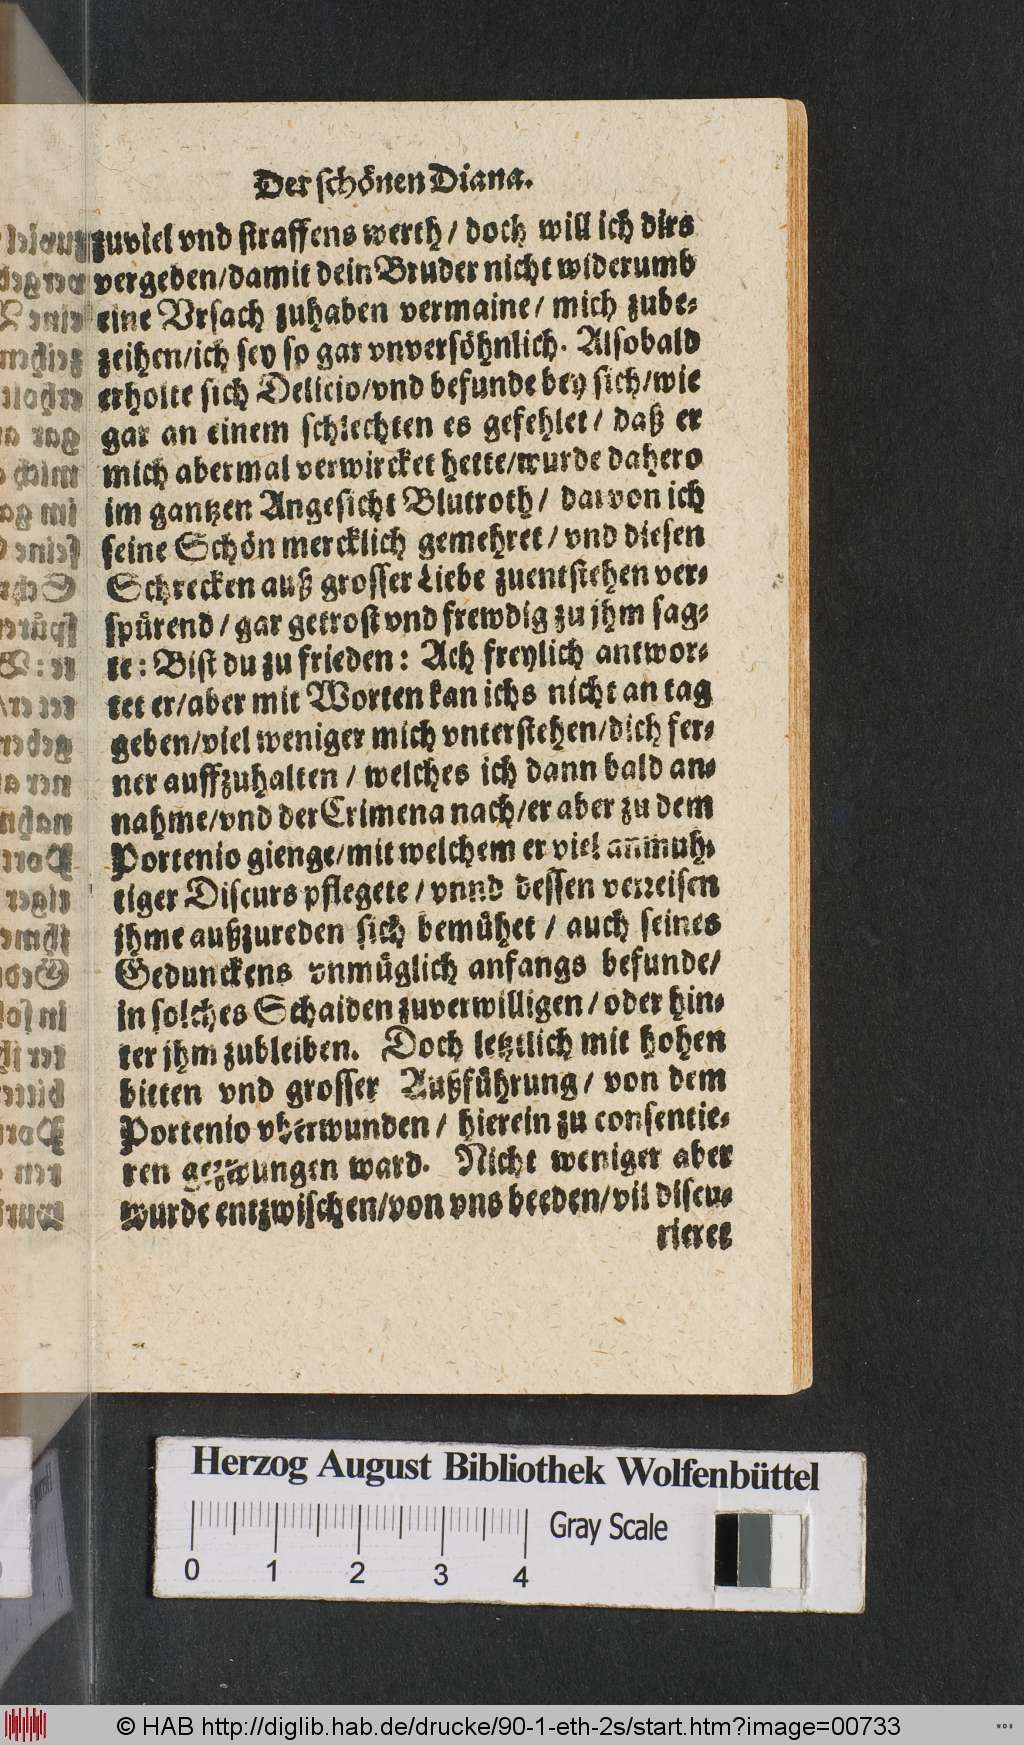 Der schönen Diana.
zuviel vnd straffens werth / doch will ich dirs
vergeben/damit dein Bruder nicht widerumb
eine Vrsach zuhaben vermaine / mich zube-
zeihen/ich sey so gar vnversöhnlich. Alsobald
erholte sich Delicio/vnd befunde bey sich/wie
gar an einem schlechten es gefehlet / daß er
mich abermal verwircket hette/wurde dahero
im gantzen Angesicht Blutroth / darvon ich
seine Schön mercklich gemehret / vnd diesen
Schrecken auß grosser Liebe zuentstehen ver-
spürend / gar getrost vnd frewdig zu jhm sag-
te: Bist du zu frieden: Ach freylich antwor-
tet er/aber mit Worten kan ichs nicht an tag
geben/viel weniger mich vnterstehen/dich fer-
ner auffzuhalten / welches ich dann bald an-
nahme/vnd der Crimena nach/er aber zu dem
Portenio gienge/mit welchem er viel anmuh-
tiger Discurs pflegete / vnnd dessen verreisen
jhme außzureden sich bemühet / auch seines
Gedunckens vnmüglich anfangs befunde/
in solches Schaiden zuverwilligen / oder hin-
ter jhm zubleiben. Doch letztlich mit hohen
bitten vnd grosser Außführung / von dem
Portenio vberwunden / hierein zu consentie-
ren gezwungen ward. Nicht weniger aber
wurde entzwischen/von vns beeden/vil discu-
rieret
Herzog August Bibliothek Wolfenbüttel
0 1 2 3 4
Gray Scale
© HAB http://diglib.hab.de/drucke/90-1-eth-2s/start.htm?image=00733